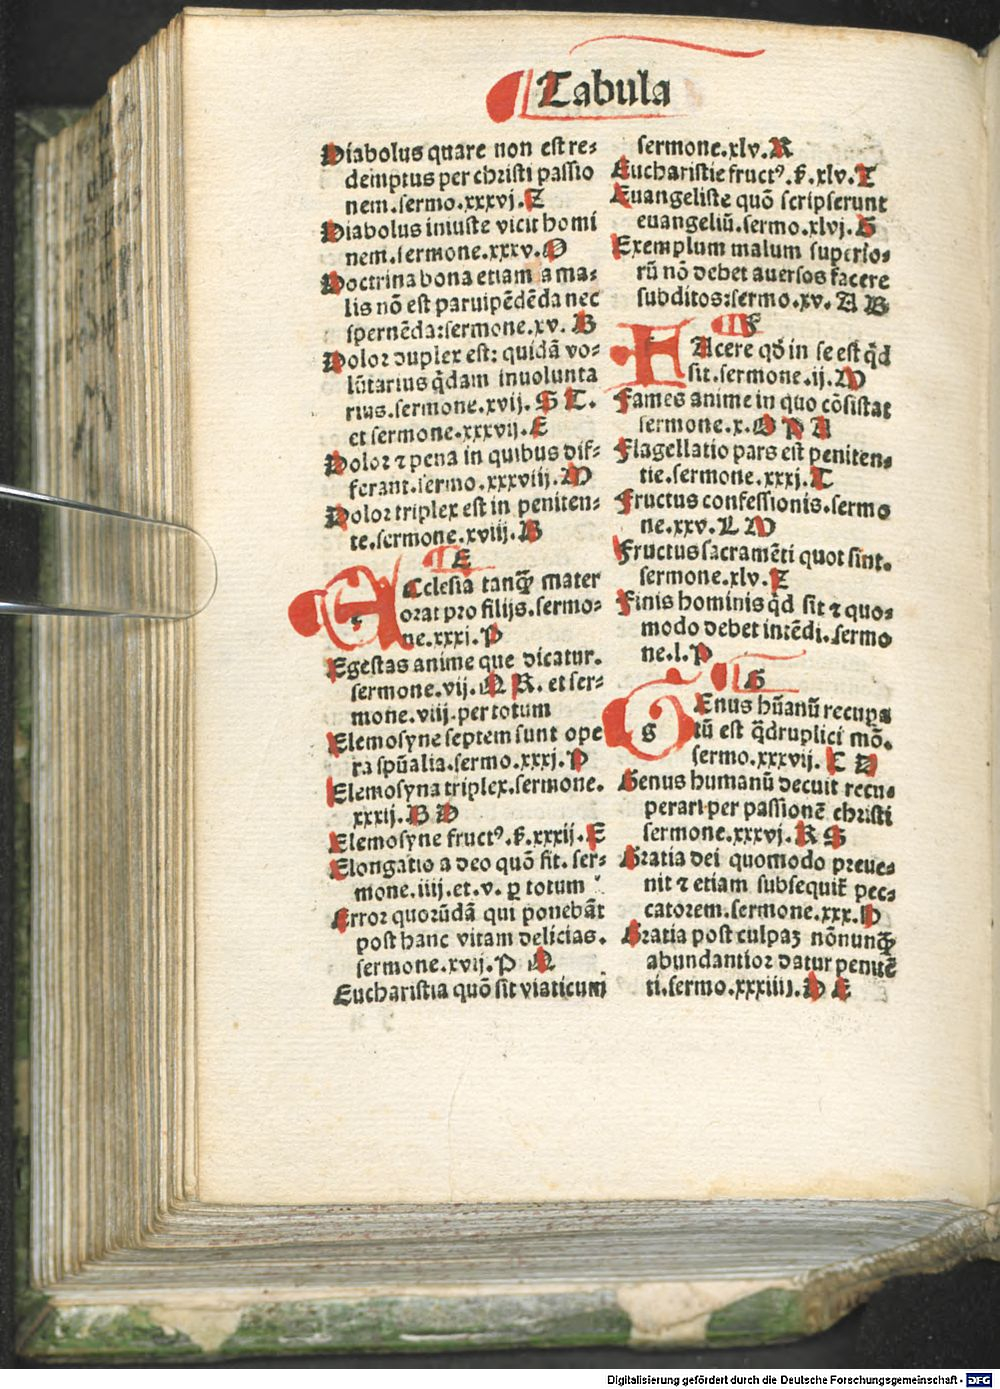 Tabula
Diabolus quare non est re-
demptus per christi passio
nem.sermo.xxxvj.Z
Diabolus iniuste vicit homi
nem.sermone.xxxv.O
Doctrina bona etiam a ma-
lis nō est paruipēdēda nec
spernēda:sermone.xv. B
Dolor duplex est: quidā vo-
lūtarius q̄dam inuolunta
rius.sermone.xvij. S T.
et sermone.xxxvij.E
Dolor ⁊ pena in quibus dif-
ferant.sermo.xxxviij.M
Dolor triplex est in peniten-
te.sermone.xviij.B
E
Ecclesia tanq̄ mater
orat pro filijs.sermo-
ne.xxxi.P
Egestas anime que dicatur.
sermone.vij.M R. et ser-
mone.viij.per totum
Elemosyne septem sunt ope
ra spūalia.sermo.xxxj.P
Elemosyna triplex.sermone.
xxxij.B D
Elemosyne fructꝰ.s̄.xxxij.E
Elongatio a deo quō fit. ser-
mone.iiij.et.v. ꝑ totum
Error quorūdā qui ponebāt
post hanc vitam delicias.
sermone.xvij.P N
Eucharistia quō sit viaticum
sermone.xlv.R
Eucharistie fructꝰ.s̄.xlv.T
Euangeliste quō scripserunt
euangeliū.sermo.xlvj.S
Exemplum malum superio-
rū nō debet auersos facere
subditos:sermo.xv. A B
F
FAcere qd̄ in se est q̄d
sit.sermone.ij.M
Fames anime in quo cōsistat
sermone.x.O P A
Flagellatio pars est peniten-
tie.sermone.xxxj.T
Fructus confessionis.sermo
ne.xxv.L M
Fructus sacramēti quot sint.
sermone.xlv.Z
Finis hominis q̄d sit ⁊ quo-
modo debet intēdi.sermo
ne.l.P
G
GEnus hūanū recupa
tū est q̄druplici mō.
sermo.xxxvij. C D
Genus humanū decuit recu-
perari per passionē christi
sermone.xxxvj.R S
Gratia dei quomodo preue-
nit ⁊ etiam subsequit̄ pec-
catorem.sermone.xxx.D
Gratia post culpaꝫ nōnunq̄
abundantior datur penitē
ti.sermo.xxxiiij.D E
Digitalisierung gefördert durch die Deutsche Forschungsgemeinschaft - DFG